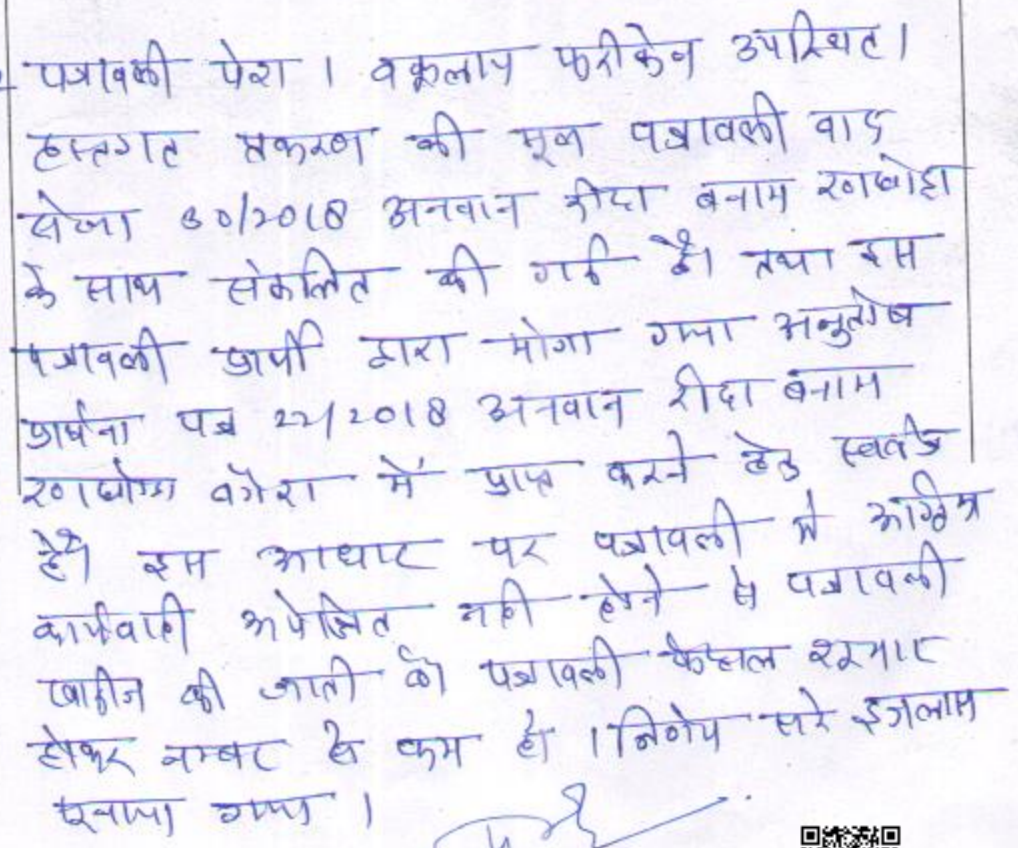 पत्रावली पेश । वकूलाय फरीकेन उपस्थित ।
हस्तगत प्रकरण की मूल पत्रावली वाद
संख्या 30/2018 अनवान रीदा बनाम
के साथ संकलित की गई है। तथा इस
पत्रावली प्रार्थी द्वारा मांगा गया अनुतोष
प्रार्थना पत्र 22/2018 अनवान रीदा बनाम
वगैरा में प्राप्त करने हेतु स्वतंत्र
है। इस आधार पर पत्रावली में अग्रिम
कार्यवाही अपेक्षित नही होने से पत्रावली
खारीज की जाती है। पत्रावली फैसल शुमार
होकर नम्बर से कम हो । निर्णय सरे इजलास
सुनाया गया ।